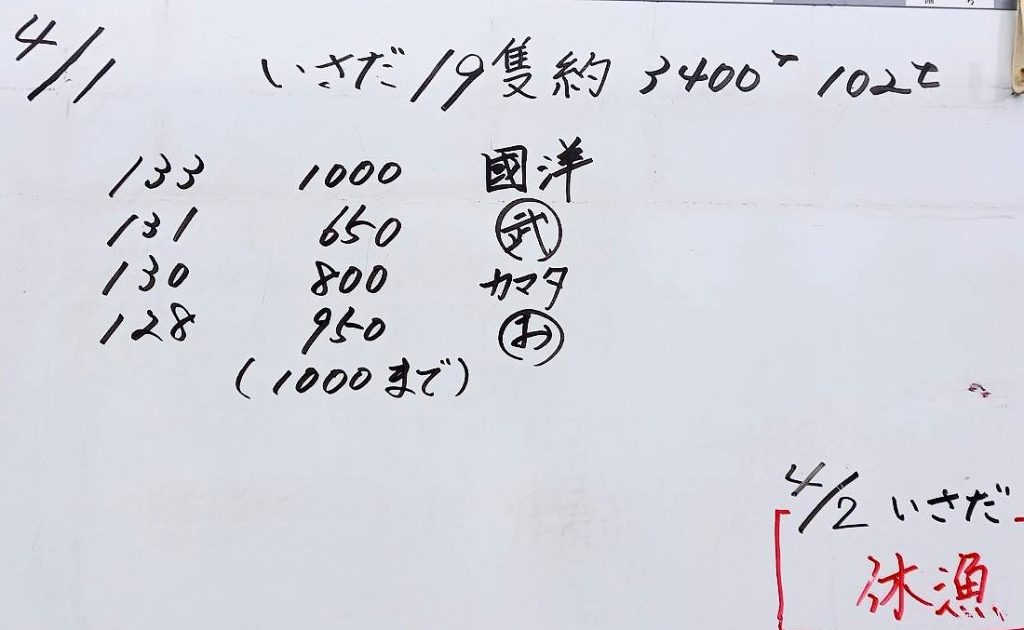 4/1 いさだ 19隻 約 3400ケ 102t
133 1000 國洋
131 650 武
130 800 カマタ
128 950 お
(1000まで)
4/2 いさだ
休漁